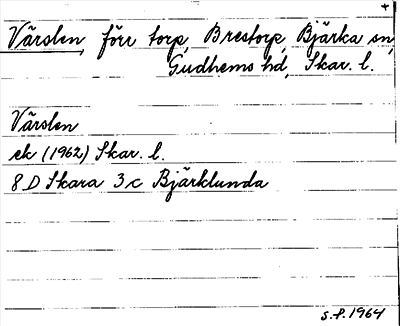 +
Värslen, förr torp, Brestorp, Bjärka sn,
Gudhems hd, Skar. l.
Värslen
ek (1962) Skar. l.
8 D Skara 3 c Bjärklunda
S.P. 1964